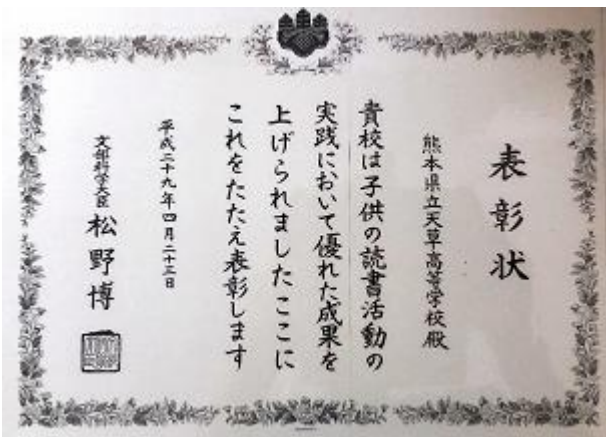 表彰状
熊本県立天草高等学校殿
貴校は子供の読書活動の
実践において優れた成果を
上げられましたここに
これをたたえ表彰します
平成二十九年四月二十三日
文部科学大臣 松野博